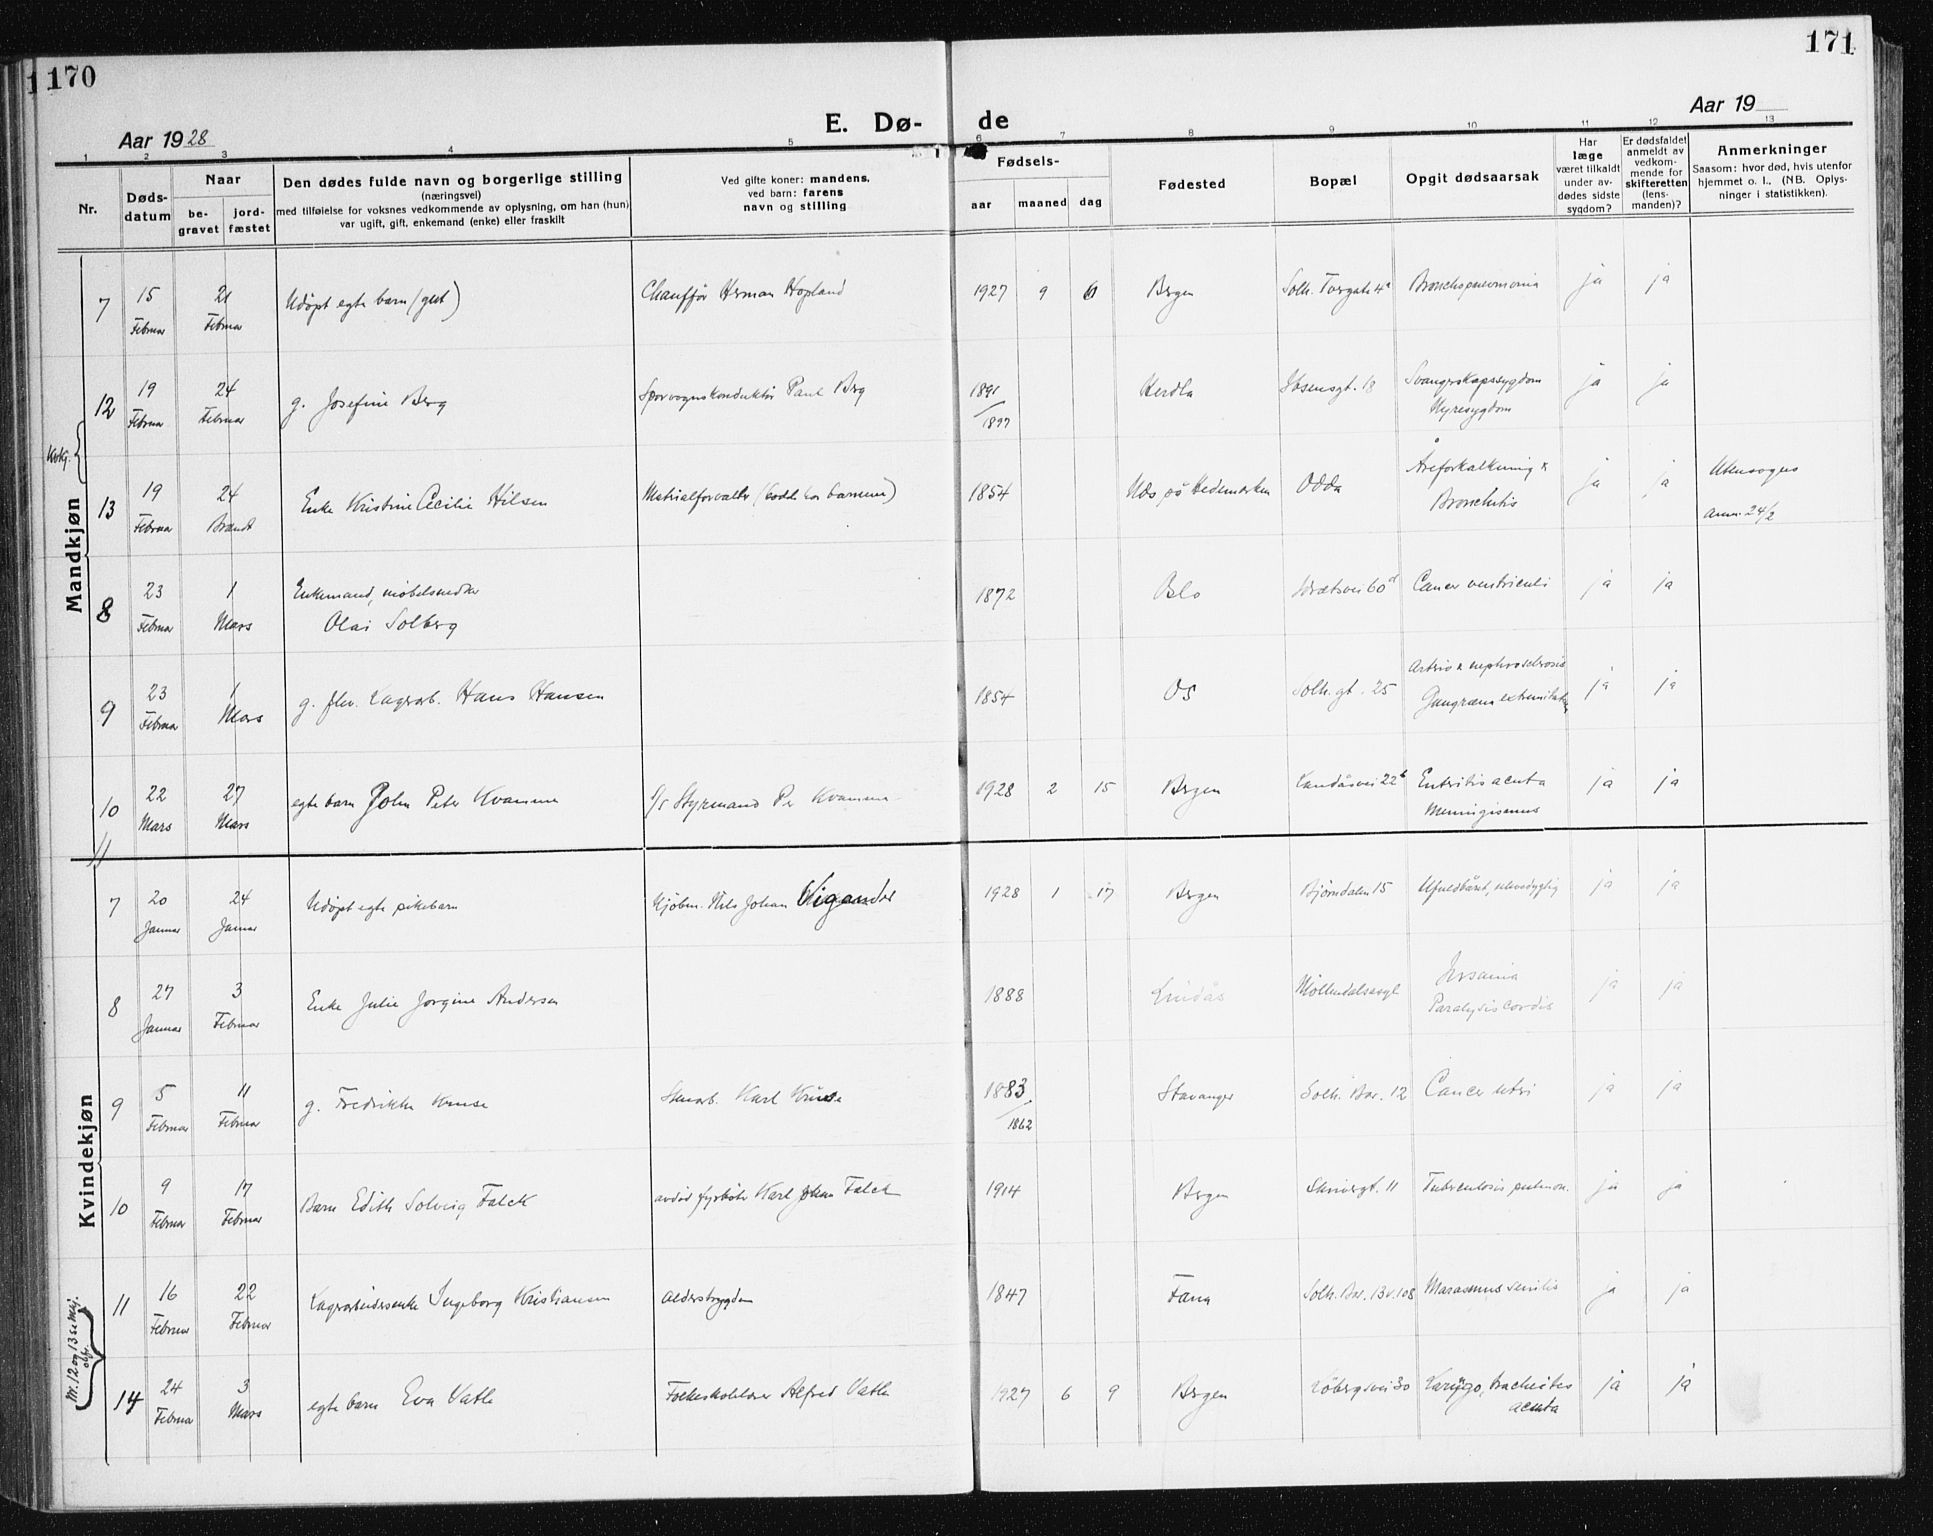 170
171
Aar 1928
E. Dø-
de
Aar 19
1 2 3 4 5 6 7 8 9 10 11 12 13
Nr.
Døds-
datum
Naar
be-
gravet
jord-
fæstet
Den dødes fulde navn og borgerlige stilling
(næringsvei)
med tilføielse for voksnes vedkommende av oplysning, om han (hun)
var ugift, gift, enkemand (enke) eller fraskilt
Ved gifte koner: mandens,
ved barn: farens
navn og stilling
Fødsels-
aar
maaned
dag
Fødested
Bopæl
Opgit dødsaarsak
Har
læge
været tilkaldt
under av-
dødes sidste
sygdom?
Er dødsfaldet
anmeldt av
vedkom-
mende for
skifteretten
(lens-
manden)?
Anmerkninger
Saasom: hvor død, hvis utenfor
hjemmet o. l., (NB. Oplys-
ninger i statistikken).
Mandkjøn
7 15 Februar 21 Februar Udøpt egte barn (gut) Chauffør Herman Hopland 1927 9 6 Bergen Solh. Torgate 4a Bronchopneumonia ja ja
Kvkj.
12 19 Februar 24 Februar g. Josefine Berg Sporvognskonduktør Paul Berg 1891/1897 Herdla Ibsensgt. 18 Svangerskapssygdom Nyresygdom ja ja
13 19 Februar 24 Brændt Enke Kristine Cecilie Nilsen Materialforvalter (bodde hos barnene) 1854 Nes på Hedemarken Odda Åreforkalkning & Bronchitis ja ja Utensogns anm. 24/2
8 23 Februar 1 Mars Enkemand, møbelsnedker
Olai Solberg 1872 Oslo Idrætsvei 60d Cancer ventriculi ja ja
9 23 Februar 1 Mars g. fhv. Lagerarb. Hans Hansen 1854 Os Solh. gt. 25 Arterio & nephrosclerosis ja ja
10 22 Mars 27 Mars egte barn John Peter Kvamme Styrmand Per Kvamme 1928 2 15 Bergen Landåsvei 22b Enteritis acuta Meningismus ja ja
11
Kvindekjøn
7 20 Januar 24 Januar Udøpt egte pikebarn Kjøbm. Nils Johan Wigander 1928 1 17 Bergen Bjørndalen 15 Ufuldbåret, ulevedygtig ja ja
8 27 Januar 3 Februar Enke Julie Jorgine Andersen 1888 Lindås Møllendalsasyl Insania Paralysis cordis ja ja
9 5 Februar 11 Februar g. Fredrikke Kruse Stenarb. Karl Kruse 1883/1862 Stavanger Solh. Bar. 12 Cancer uteri ja ja
10 9 Februar 17 Februar Barn Edith Solveig Falck avdød fyrbøter Karl Johan Falck 1914 Bergen Skivergt. 11 Tuberculosis pulmon. ja ja
11 16 Februar 22 Februar Lagerarbeidersenke Ingeborg Kristiansen Alderstrygden 1847 Fana Solh. Bar. 13 v. 108 Marasmus senilis ja ja
Nr. 12 og 13 se høj. ofr.
14 24 Februar 3 Mars egte barn Eva Vatle Folkeskolelærer Alfred Vatle 1927 6 9 Bergen Løbergsvei 30 Laryngo, tracheitis acuta ja ja